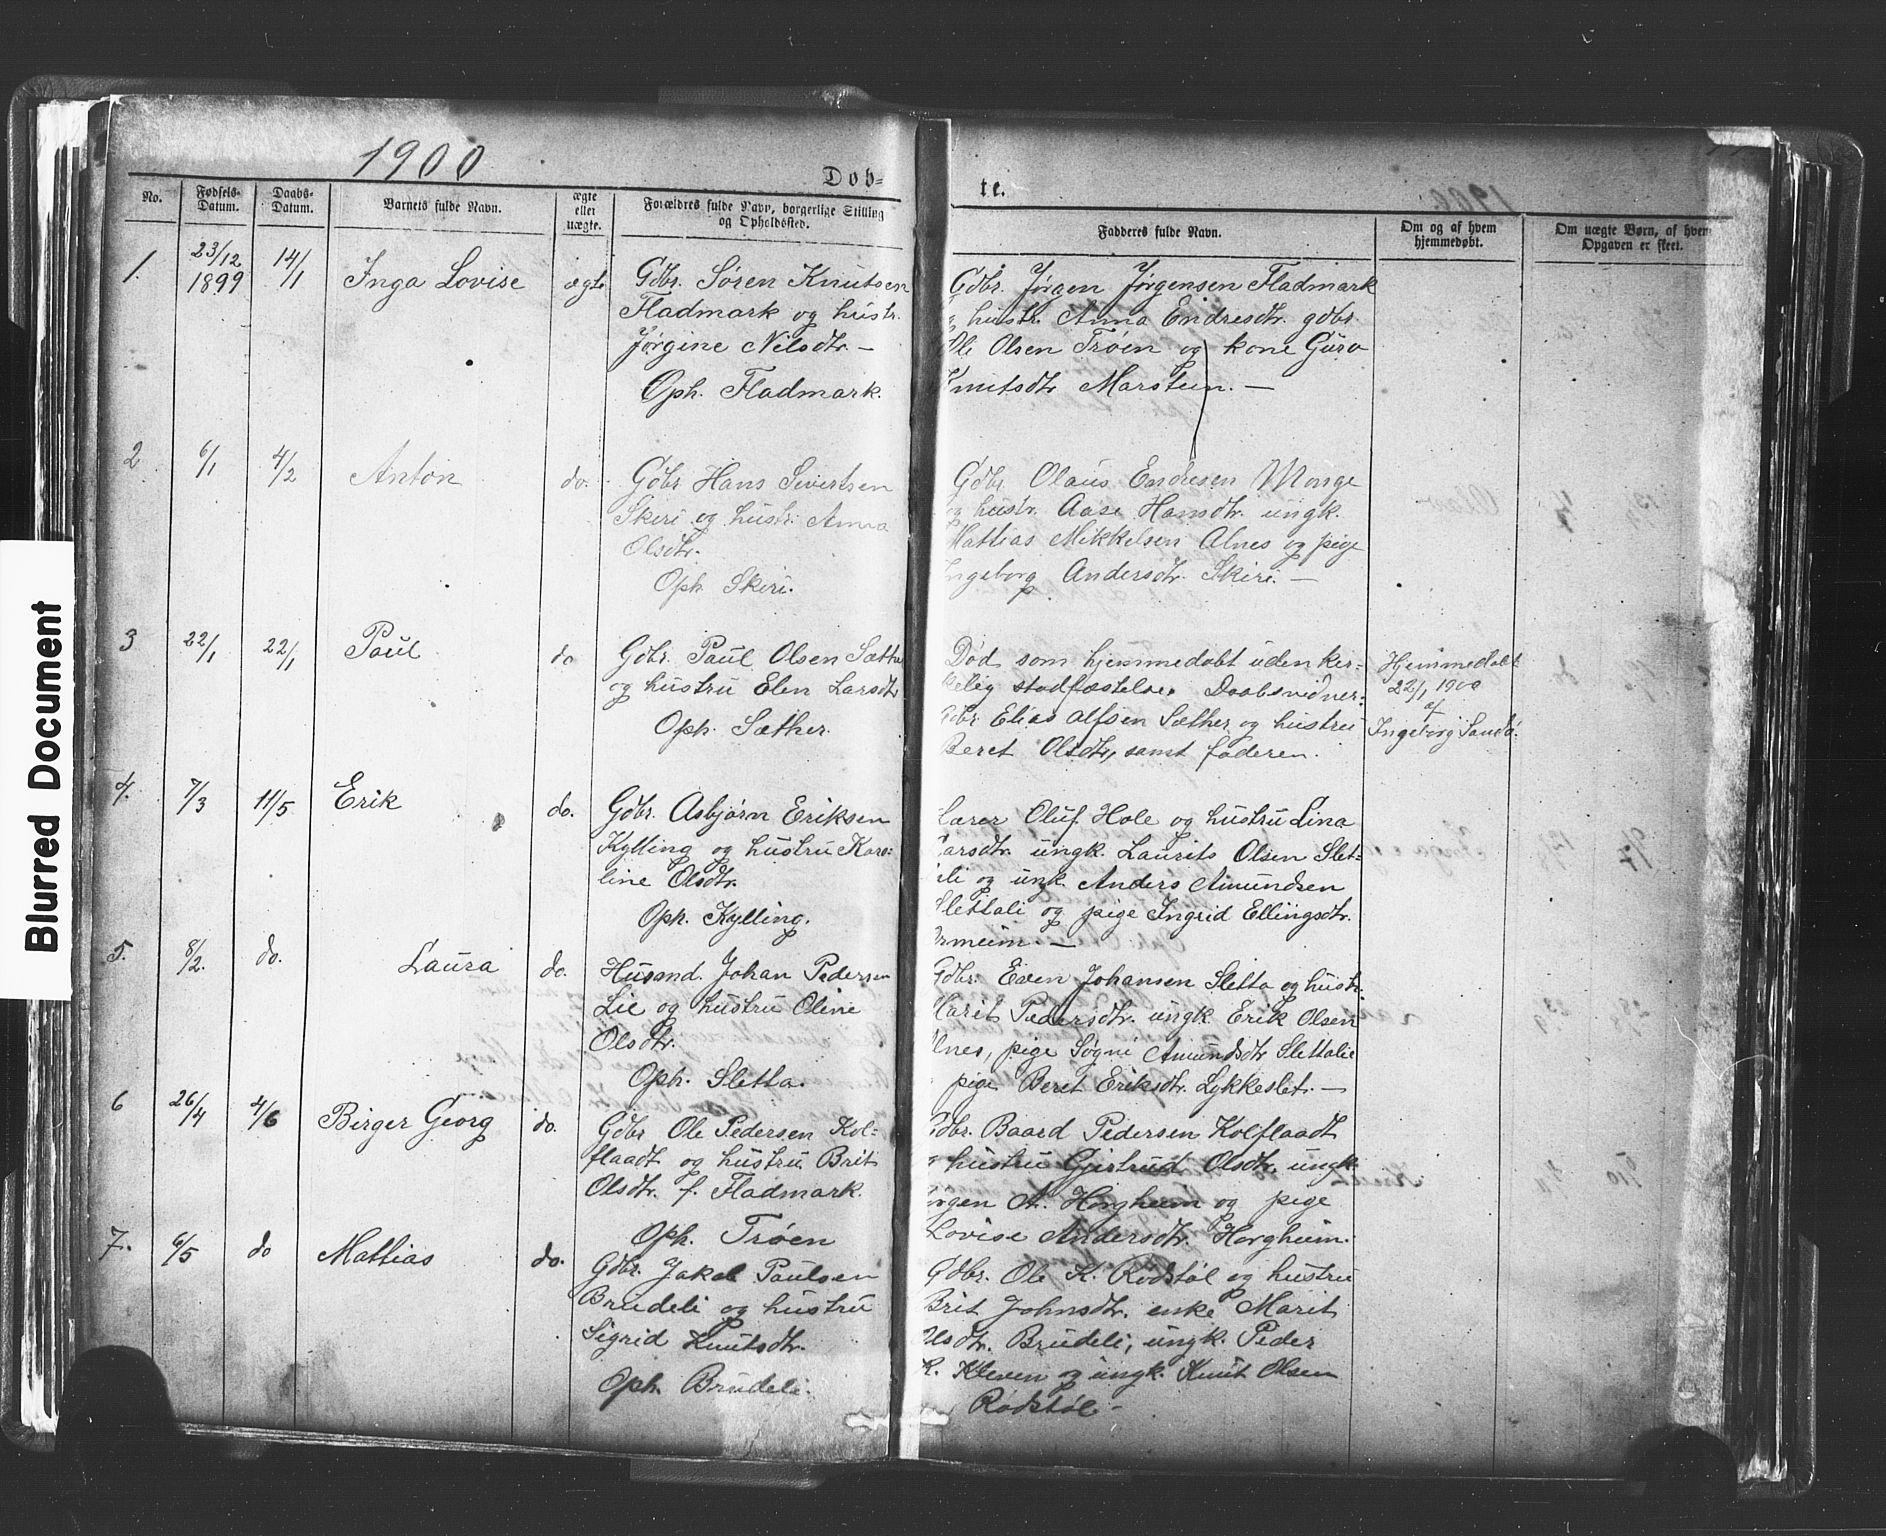 Blurred Document
1900
Døb-
te.
No.
Fødsels-
Datum.
Daabs-
Datum.
Barnets fulde Navn.
ægte
eller
uægte.
Forældres fulde Navn, borgerlige Stilling
og Opholdssted.
Fadderes fulde Navn.
Om og af hvem
hjemmedøbt.
Om uægte Børn, af hvem
Opgaven er skeet.
1.
23/12
1899
14/1
Inga Lovise
ægte
Gdbr. Søren Knutsen
Fladmark og hustr.
Jørgine Nilsdtr. —
Oph. Fladmark.
Gdbr. Jørgen Jørgensen Fladmark
hustr. Anna Endresdtr. gdbr.
Ole Olsen Trøen og kone Guro
Knutsdtr Marstein. —
2
6/1
4/2
Anton
do.
Gdbr Hans Sivertsen
Skiri og hustr. Anna
Olsdtr.
Oph. Skiri.
Gdbr. Olaus Endresen Monge
og hustr. Aase Hansdtr. ungk.
Mattias Mikkelsen Alnes og pige
Ingeborg Andersdtr. Skiri. —
3
22/1
22/1
Paul
do
Gdbr. Paul Olsen Sæther
og hustru Elen Larsdtr
Oph. Sæther.
Død som hjemmedøbt uden kir-
kelig stadfæstelse. Daabsvidner:
Gdbr Elias Alfsen Sæther og hustru
Beret Olsdtr, samt faderen.
Hjemmedøbt
22/1 1900
af
Ingeborg Sandø.
4.
7/3
11/5
Erik
do.
Gdbr. Asbjørn Eriksen
Kylling og hustru Karo-
line Olsdtr.
Oph. Kylling.
Lærer Oluf Hole og hustru Lina
Larsdtr. ungk. Laurits Olsen Slet-
teli og ungk. Anders Amundsen
Slettali og pige Ingrid Ellingsdtr.
Ormeim. —
5.
8/2.
do.
Laura
do.
Husmd. Johan Pedersen
Lie og hustru Oline
Olsdtr.
Oph. Sletta.
Gdbr. Even Johansen Sletta og hustr.
Marit Pedersdtr. ungk Erik Olsen
Alnes, pige Søgni Amundsdtr Slettalie
pige Beret Eriksdtr. Lykkeslet. —
6
26/4
4/6
Birger Georg
do.
Gdbr Ole Pedersen Kol-
flaadt og hustru Brit
Olsdtr. f. Fladmark.
Oph. Trøen
Gdbr. Baard Pedersen Kolflaadt
hustru Gjertrud Olsdtr. ungk
Jørgen A. Horgheim og pige
Lovise Andersdtr. Horgheim.
7.
6/5
do
Mattias
do.
Gdbr. Jakob Paulsen
Brudeli og hustru
Sigrid Knutsdtr.
Oph. Brudeli.
Gdbr. Ole K. Rødstøl og hustru
Brit Johnsdtr. enke Marit
Olsdtr. Brudeli, ungk. Peder
K. Kleven og ungk. Knut Olsen
Rødstøl —